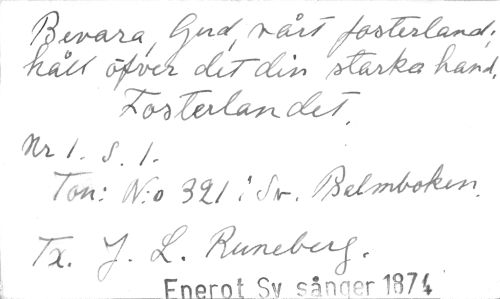 Bevara, Gud, vårt fosterland,
håll öfver det din starka hand,
Fosterlandet.
Nr 1. S. 1.
Ton: N:o 321 i Sv. Psalmboken.
Tx. J. L. Runeberg.
Enerot Sv sånger 1874